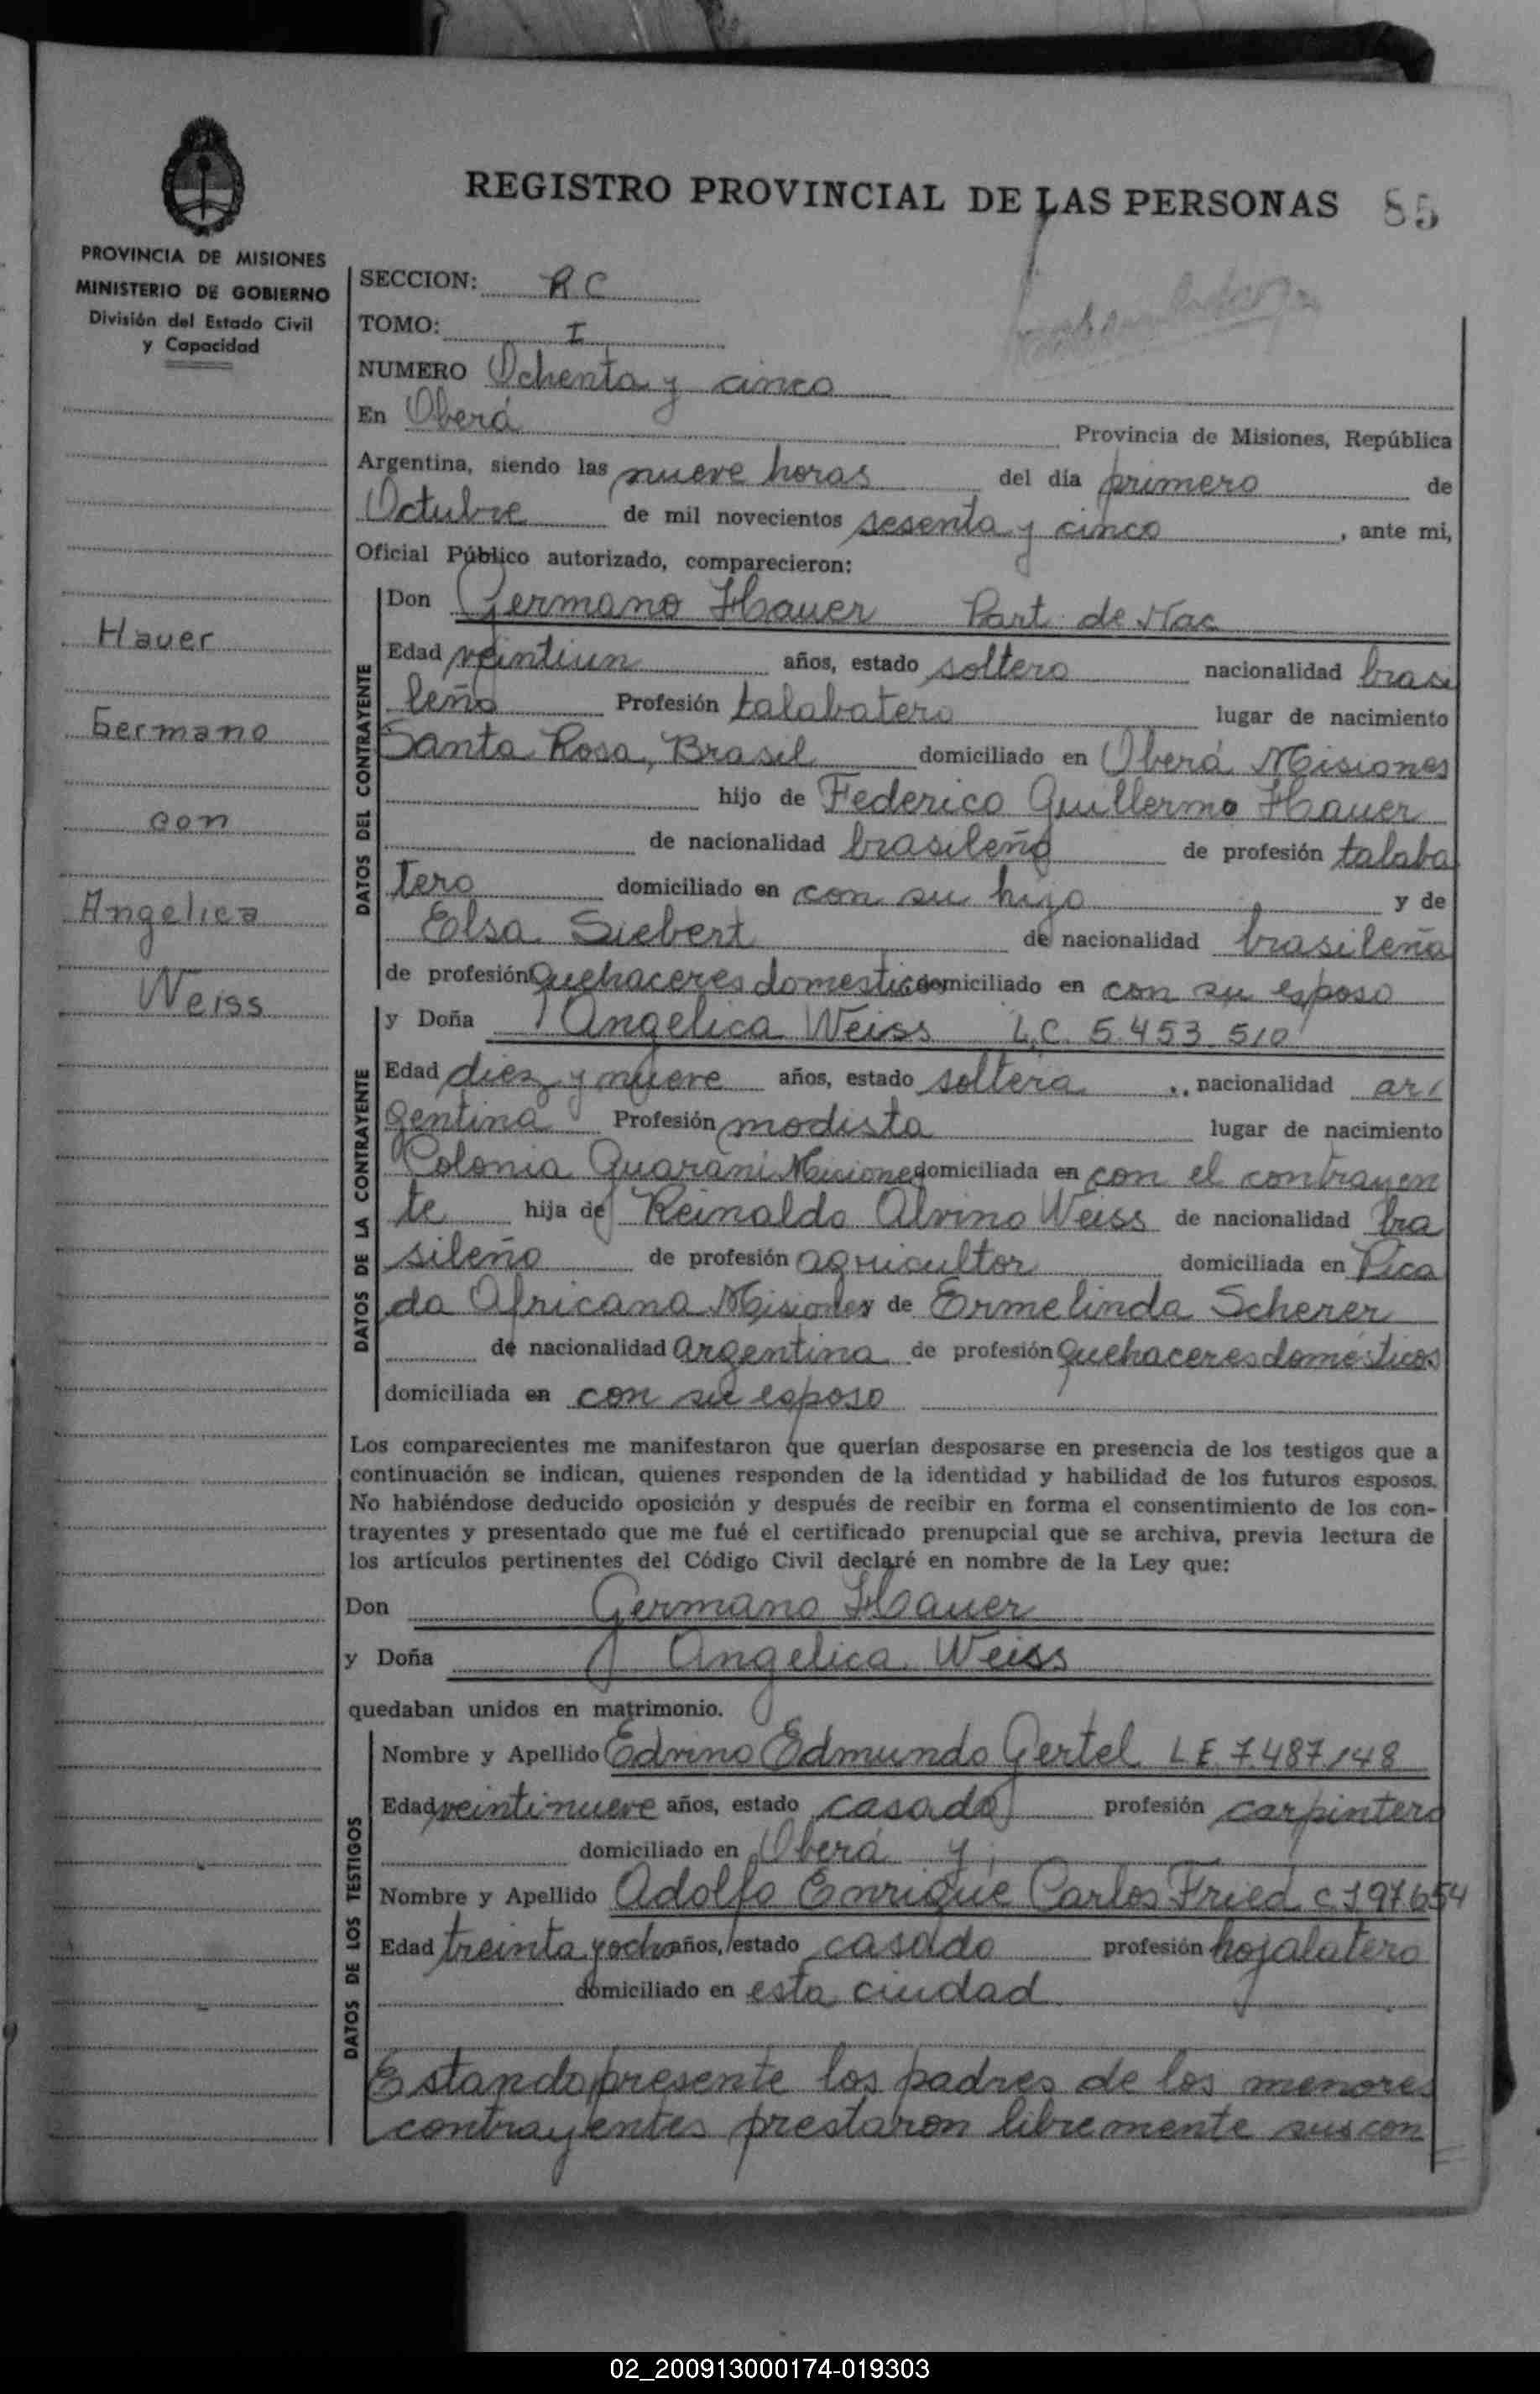 REGISTRO PROVINCIAL DE LAS PERSONAS 85
PROVINCIA DE MISIONES
MINISTERIO DE GOBIERNO
División del Estado Civil
y Capacidad
Hauer
Germano
con
Angelica
Weiss
SECCION: RC
TOMO: I
NUMERO Ochenta y cinco
En Oberá Provincia de Misiones, República
Argentina, siendo las nueve horas del día primero de
Octubre de mil novecientos sesenta y cinco, ante mi,
Oficial Público autorizado, comparecieron:
DATOS DEL CONTRAYENTE
Don Germano Hauer Part. de Nac
Edad veintiun años, estado soltero nacionalidad brasi
leño Profesión talabatero lugar de nacimiento
Santa Rosa, Brasil domiciliado en Oberá Misiones
hijo de Federico Guillermo Hauer
de nacionalidad brasileño de profesión talaba
tero domiciliado en con su hijo y de
Elsa Siebert de nacionalidad brasileña
de profesión Quehaceres domesticos domiciliado en con su esposo
DATOS DE LA CONTRAYENTE
y Doña Angelica Weiss L.C. 5.453.510
Edad diez y nueve años, estado soltera, nacionalidad ar
gentina Profesión modista lugar de nacimiento
Colonia Guaraní Misiones domiciliada en con el contrayen
te hija de Reinaldo Alvino Weiss de nacionalidad bra
sileño de profesión agricultor domiciliada en Pica
da Africana Misiones y de Ermelinda Scherer
de nacionalidad argentina de profesión Quehaceres domésticos
domiciliada en con su esposo
Los comparecientes me manifestaron que querían desposarse en presencia de los testigos que a
continuación se indican, quienes responden de la identidad y habilidad de los futuros esposos.
No habiéndose deducido oposición y después de recibir en forma el consentimiento de los con-
trayentes y presentado que me fué el certificado prenupcial que se archiva, previa lectura de
los artículos pertinentes del Código Civil declaré en nombre de la Ley que:
Don Germano Hauer
y Doña Angelica Weiss
quedaban unidos en matrimonio.
DATOS DE LOS TESTIGOS
Nombre y Apellido Edvino Edmundo Gertel L.E. 7.487148
Edad veintinueve años, estado casado profesión carpintero
domiciliado en Oberá y
Nombre y Apellido Adolfo Enrique Carlos Fried C.I 97.654
Edad treinta y ocho años, estado casado profesión hojalatero
domiciliado en esta ciudad
Estando presente los padres de los menores
contrayentes prestaron libremente sus con
02_200913000174-019303